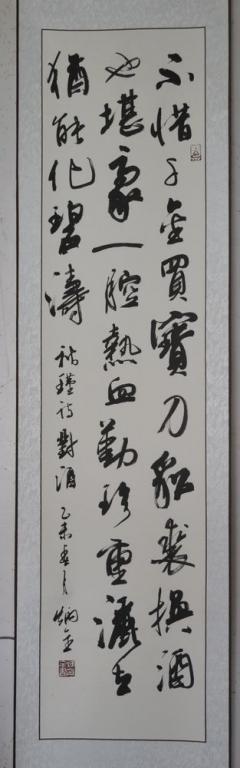 不惜千金買寶刀貂裘換酒
也堪豪一腔熱血勤珍重灑去
猶能化碧濤
秋瑾诗對酒乙未春月炳金